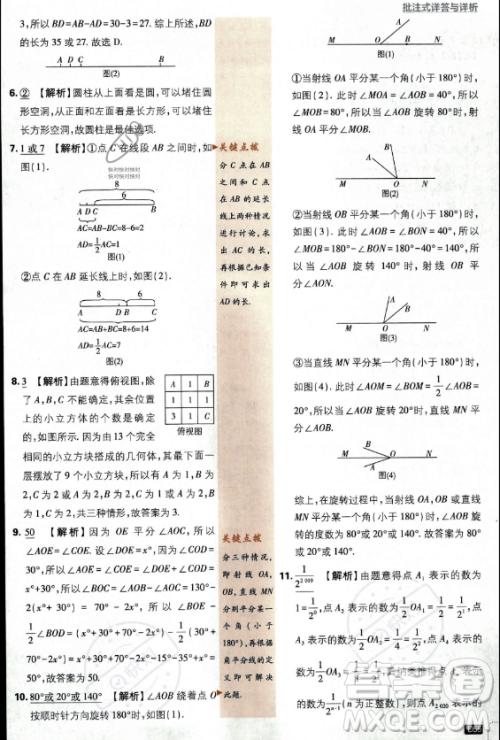 批注式详答与详析
3,所以 BD=AB-AD=30-3=27. 综上所述,BD
的长为 35 或 27. 故选 D.
D C A B
图(2)
6.② 【解析】圆柱从上面看是圆,可以堵住圆
形空洞,从正面和左面看是长方形,可以堵住方
形空洞,故圆柱是最佳选项.
7.1 或 7 【解析】①点 C 在线段 AB 之间时,如
图(1).
8
6
A D C B
AC=AB-BC=8-6=2
AD=1/2AC=1
图(1)
②点 C 在 AB 延长线上时,如图(2).
8 6
A D B C
AC=AB+BC=8+6=14
AD=1/2AC=7
图(2)
8.3 【解析】由题意得俯视图,除
了 A,B,C 不能确定,其余位置
上的小立方体的个数是确定
的,如图所示. 因为由 13 个完全
相同的小立方块搭成的几何体,其最下面一
层摆放了 9 个小立方块,所以有 A 为 1,B 为
2,C 为 2 或 A 为 2,B 为 2,C 为 1 或 A 为 2,B
为 1,C 为 2,共三种情形,故答案为 3.
A 1 B
1 1 1
3 1 C
俯视图
9.50 【解析】因为 OE 平分∠AOC,所以
∠AOE=∠COE. 设∠DOE=x°,因为∠COD=
30°,所以∠AOE=∠COE=∠DOE+∠COD=
x°+30°,所以∠BOC=∠AOB-∠AOC=130°-
2(x°+30°)=70°-2x°,所以∠BOE-
1/2∠BOD=x°+30°+70°-2x°-1/2(30°+
70°-2x°)=x°+30°+70°-2x°-15°-35°+x°=
50°,故答案为 50.
10.80°或 20°或 140° 【解析】∠AOB 绕着点 O
按顺时针方向旋转 180°时,如图(1).
关键点拨
分 C 点在 AB
之间和 C 点
在 AB 的延长
线上两种情况
进行讨论,求
出 AC 的长,
再根据已知条
件即可求出
AD 的长.
关键点拨
分三种情况,
即射线 OA,
OB,直线 MN
分别平分某一
个角(小于
180°)时,根据
角平分线的定
义即可解决
此题.
A
B
M O N
图(1)
①当射线 OA 平分某一个角(小于 180°)时,
如图(2). 此时∠MOA=∠AOB=40°,所以
∠MOB=80°,所以当∠AOB 旋转 80°时,射
线 OA 平分∠MOB.
B
A
M O N
图(2)
②当射线 OB 平分某一个角(小于 180°)时,
如图(3). 此时∠AOB=∠BON=40°,所以
∠MOB=180°-∠BON=180°-40°=140°,所
以当∠AOB 旋转 140°时,射线 OB 平
分∠AON.
A
B
M O N
图(3)
③当直线 MN 平分某一个角(小于 180°)时,
如图(4). 此时∠AOM=∠BOM=1/2∠AOB=
20°,所以当∠AOB 旋转 20°时,直线 MN 平
分∠AOB.
B
M O N
A
图(4)
综上,在旋转过程中,当射线 OA,OB 或直线
MN 平分某一个角(小于 180°)时,∠AOB 旋
转的度数为 80°或 20°或 140°. 故答案为 80°
或 20°或 140°.
11.1/2^2 009 【解析】由题意得点 A₁ 表示的数为
1=1/2⁰,点 A₂ 表示的数为1/2OA₁=1/2=1/2¹,点 A₃ 表
示的数为1/2OA₂=1/4=1/2²,点 A₄ 表示的数
为1/2OA₃=1/8=1/2³